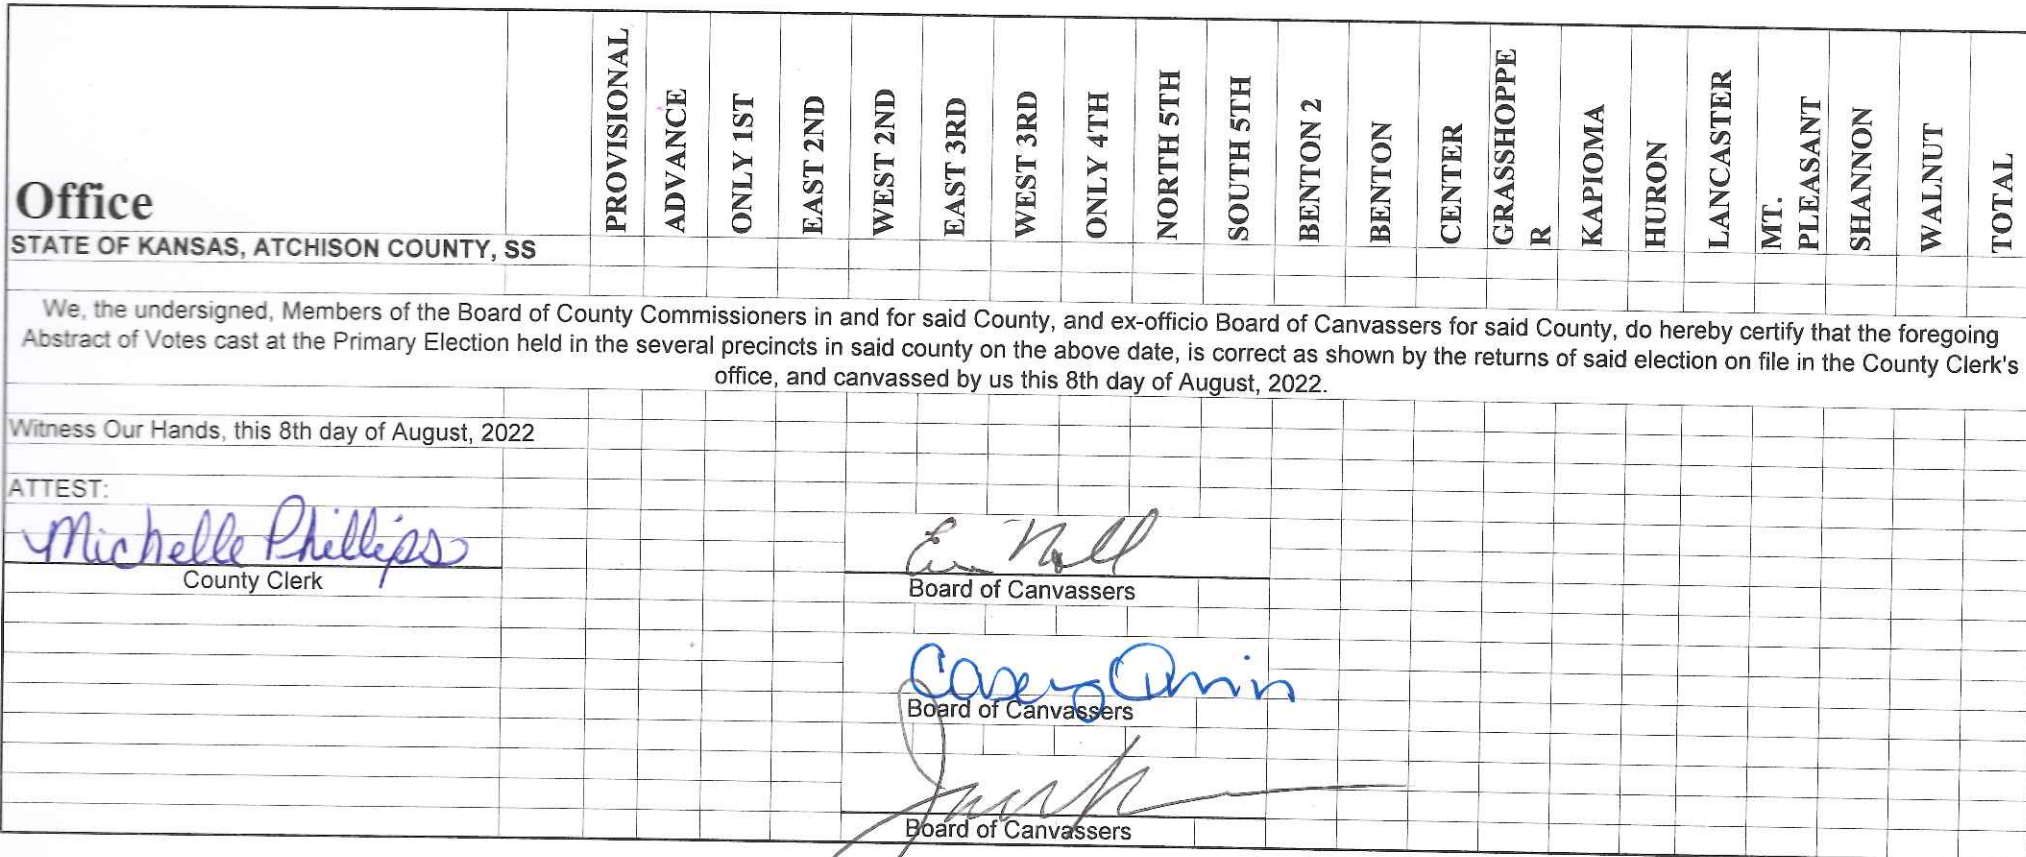 Office
PROVISIONAL
ADVANCE
ONLY 1ST
EAST 2ND
WEST 2ND
EAST 3RD
WEST 3RD
ONLY 4TH
NORTH 5TH
SOUTH 5TH
BENTON 2
BENTON
CENTER
GRASSHOPPE
R
KAPIOMA
HURON
LANCASTER
MT.
PLEASANT
SHANNON
WALNUT
TOTAL
STATE OF KANSAS, ATCHISON COUNTY, SS
We, the undersigned, Members of the Board of County Commissioners in and for said County, and ex-officio Board of Canvassers for said County, do hereby certify that the foregoing
Abstract of Votes cast at the Primary Election held in the several precincts in said county on the above date, is correct as shown by the returns of said election on file in the County Clerk's
office, and canvassed by us this 8th day of August, 2022.
Witness Our Hands, this 8th day of August, 2022
ATTEST:
Michelle Phillips
County Clerk
Board of Canvassers
Casey
Board of Canvassers
Board of Canvassers